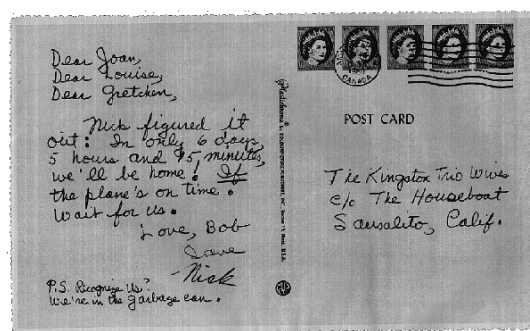 Dear Joan,
Dear Louise,
Dear Gretchen,
Nick figured it
out: In only 6 days,
5 hours and 15 minutes,
we'll be home! If
the plane's on time.
Wait for us.
Love, Bob
Dave
-Nick
P.S. Recognize Us?
We're in the garbage can.
CANADA
POST CARD
The Kingston Trio Wives
c/o The Houseboat
Sausalito, Calif.